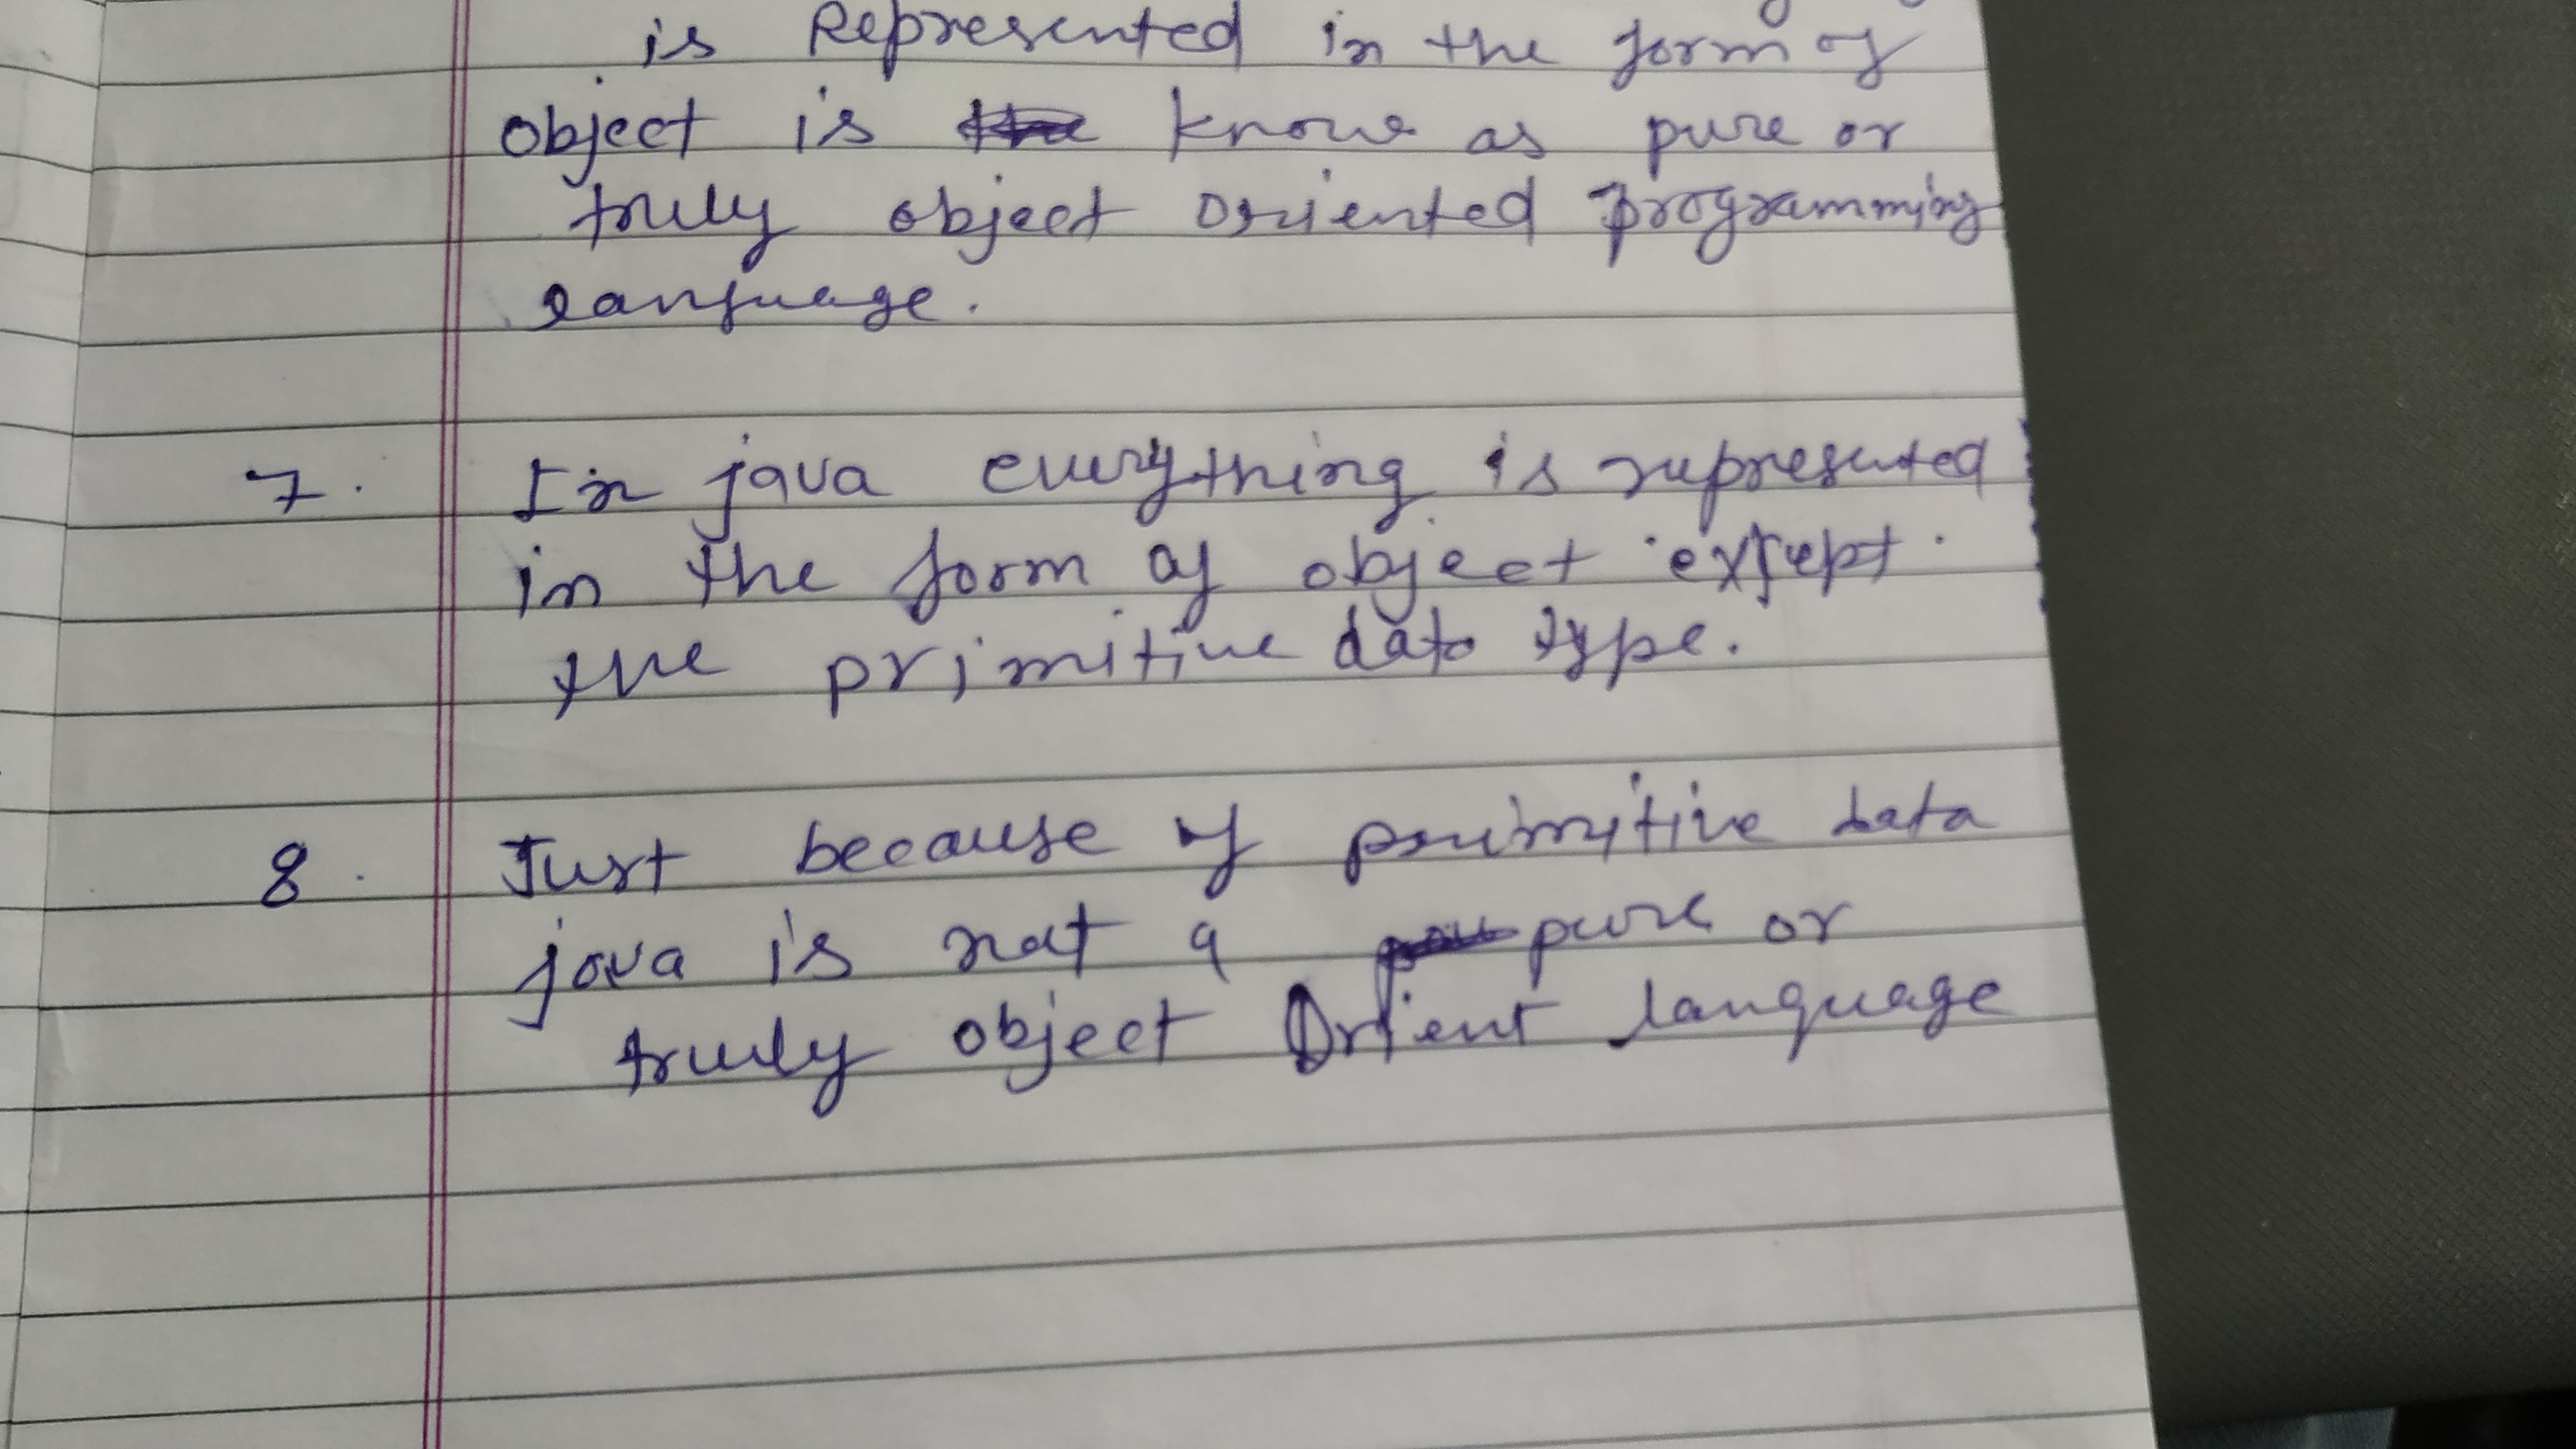 is Represented in the form of
object is know as pure or
truly object oriented programming
language.
7. In java everything is represented
in the form of object except
the primitive data type.
8. Just because of primitive data
java is not a pure or
truly object Orient language